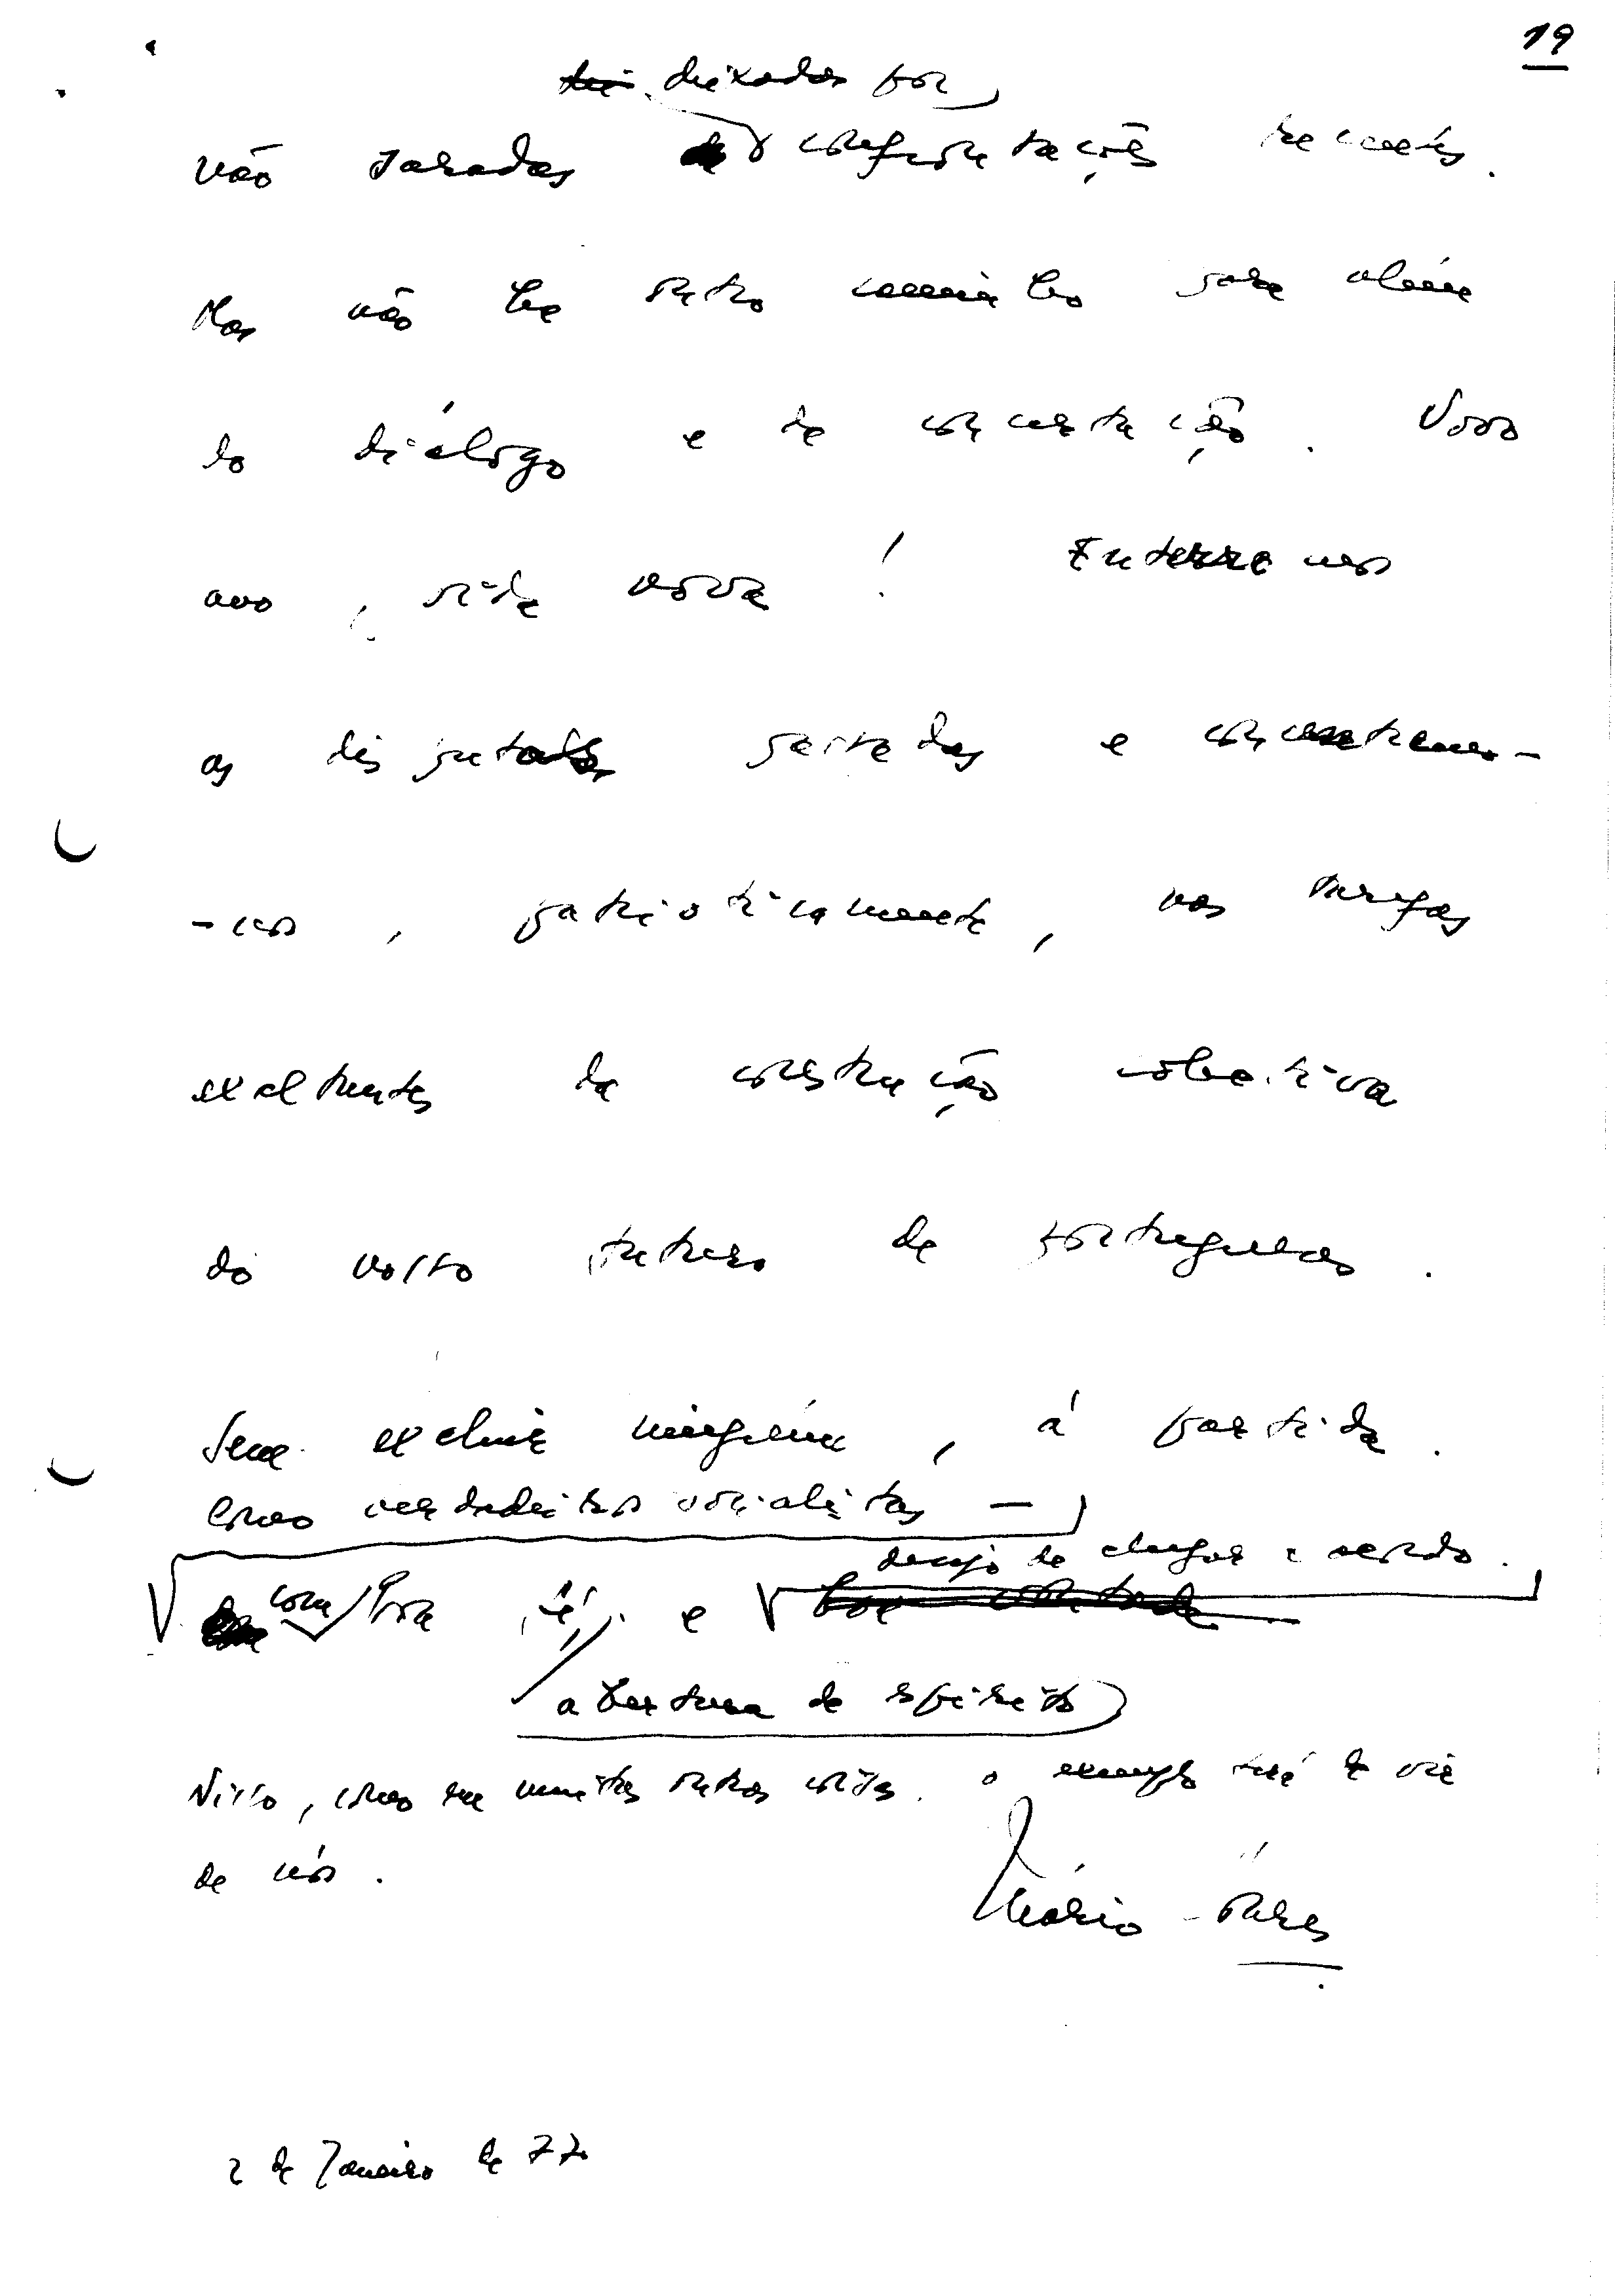 19
deixadas por
não saradas confrontações recentes.
Mas não há outro caminho para além
do diálogo e da concertação. Novo
ano, vida nova! Enterremos
as disputas passadas e concentremo-
-nos, patrioticamente, nas tarefas
exaltantes da construção colectiva
do nosso futuro de portugueses.
Sem excluir ninguém, à partida.
Como verdadeiros socialistas —
desejo de chegar a acordo.
com boa fé, e boa vontade
abertura de espírito
Nisso, como em muitas outras coisas, o exemplo terá de vir
de nós.
Mário Soares
2 de Janeiro de 77